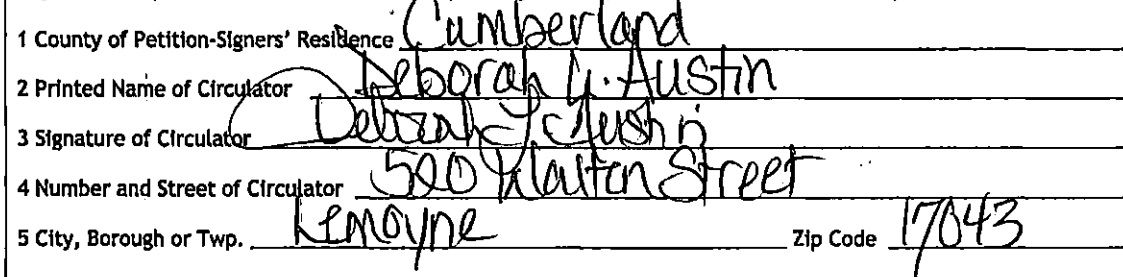 1 County of Petition-Signers' Residence Cumberland
2 Printed Name of Circulator Deborah Y. Austin
3 Signature of Circulator Deborah Y. Austin
4 Number and Street of Circulator 500 Walton Street
5 City, Borough or Twp. Lemoyne Zip Code 17043